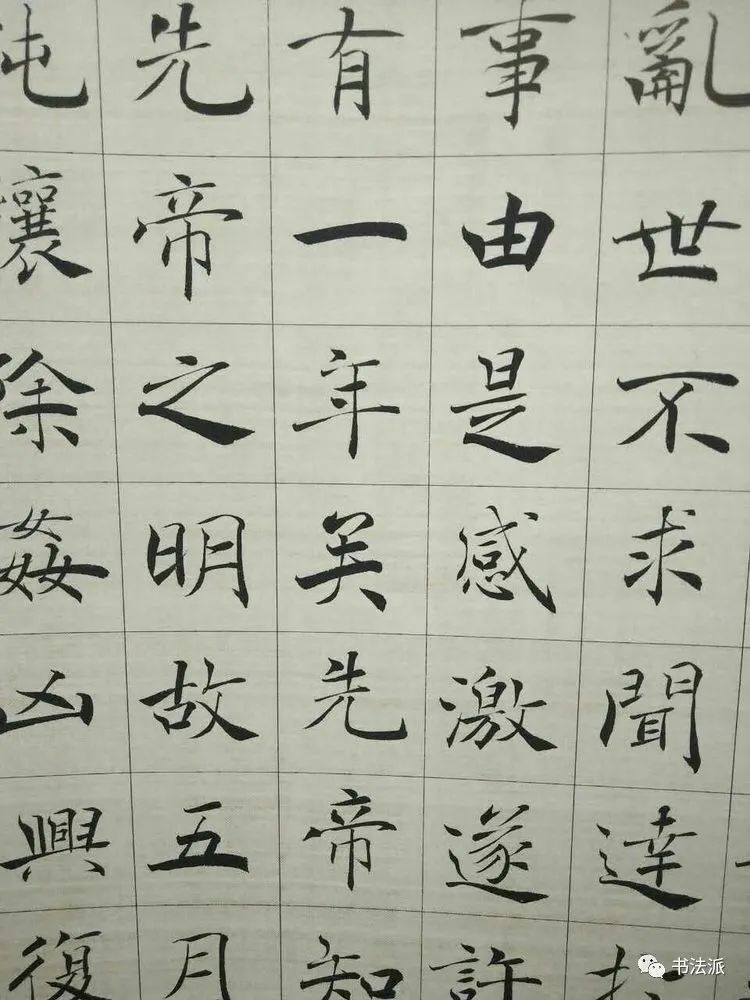 亂世不求聞達
事由是感激遂許
有一年矣先帝知
先帝之明故五月
攘除姦凶興復
书法派